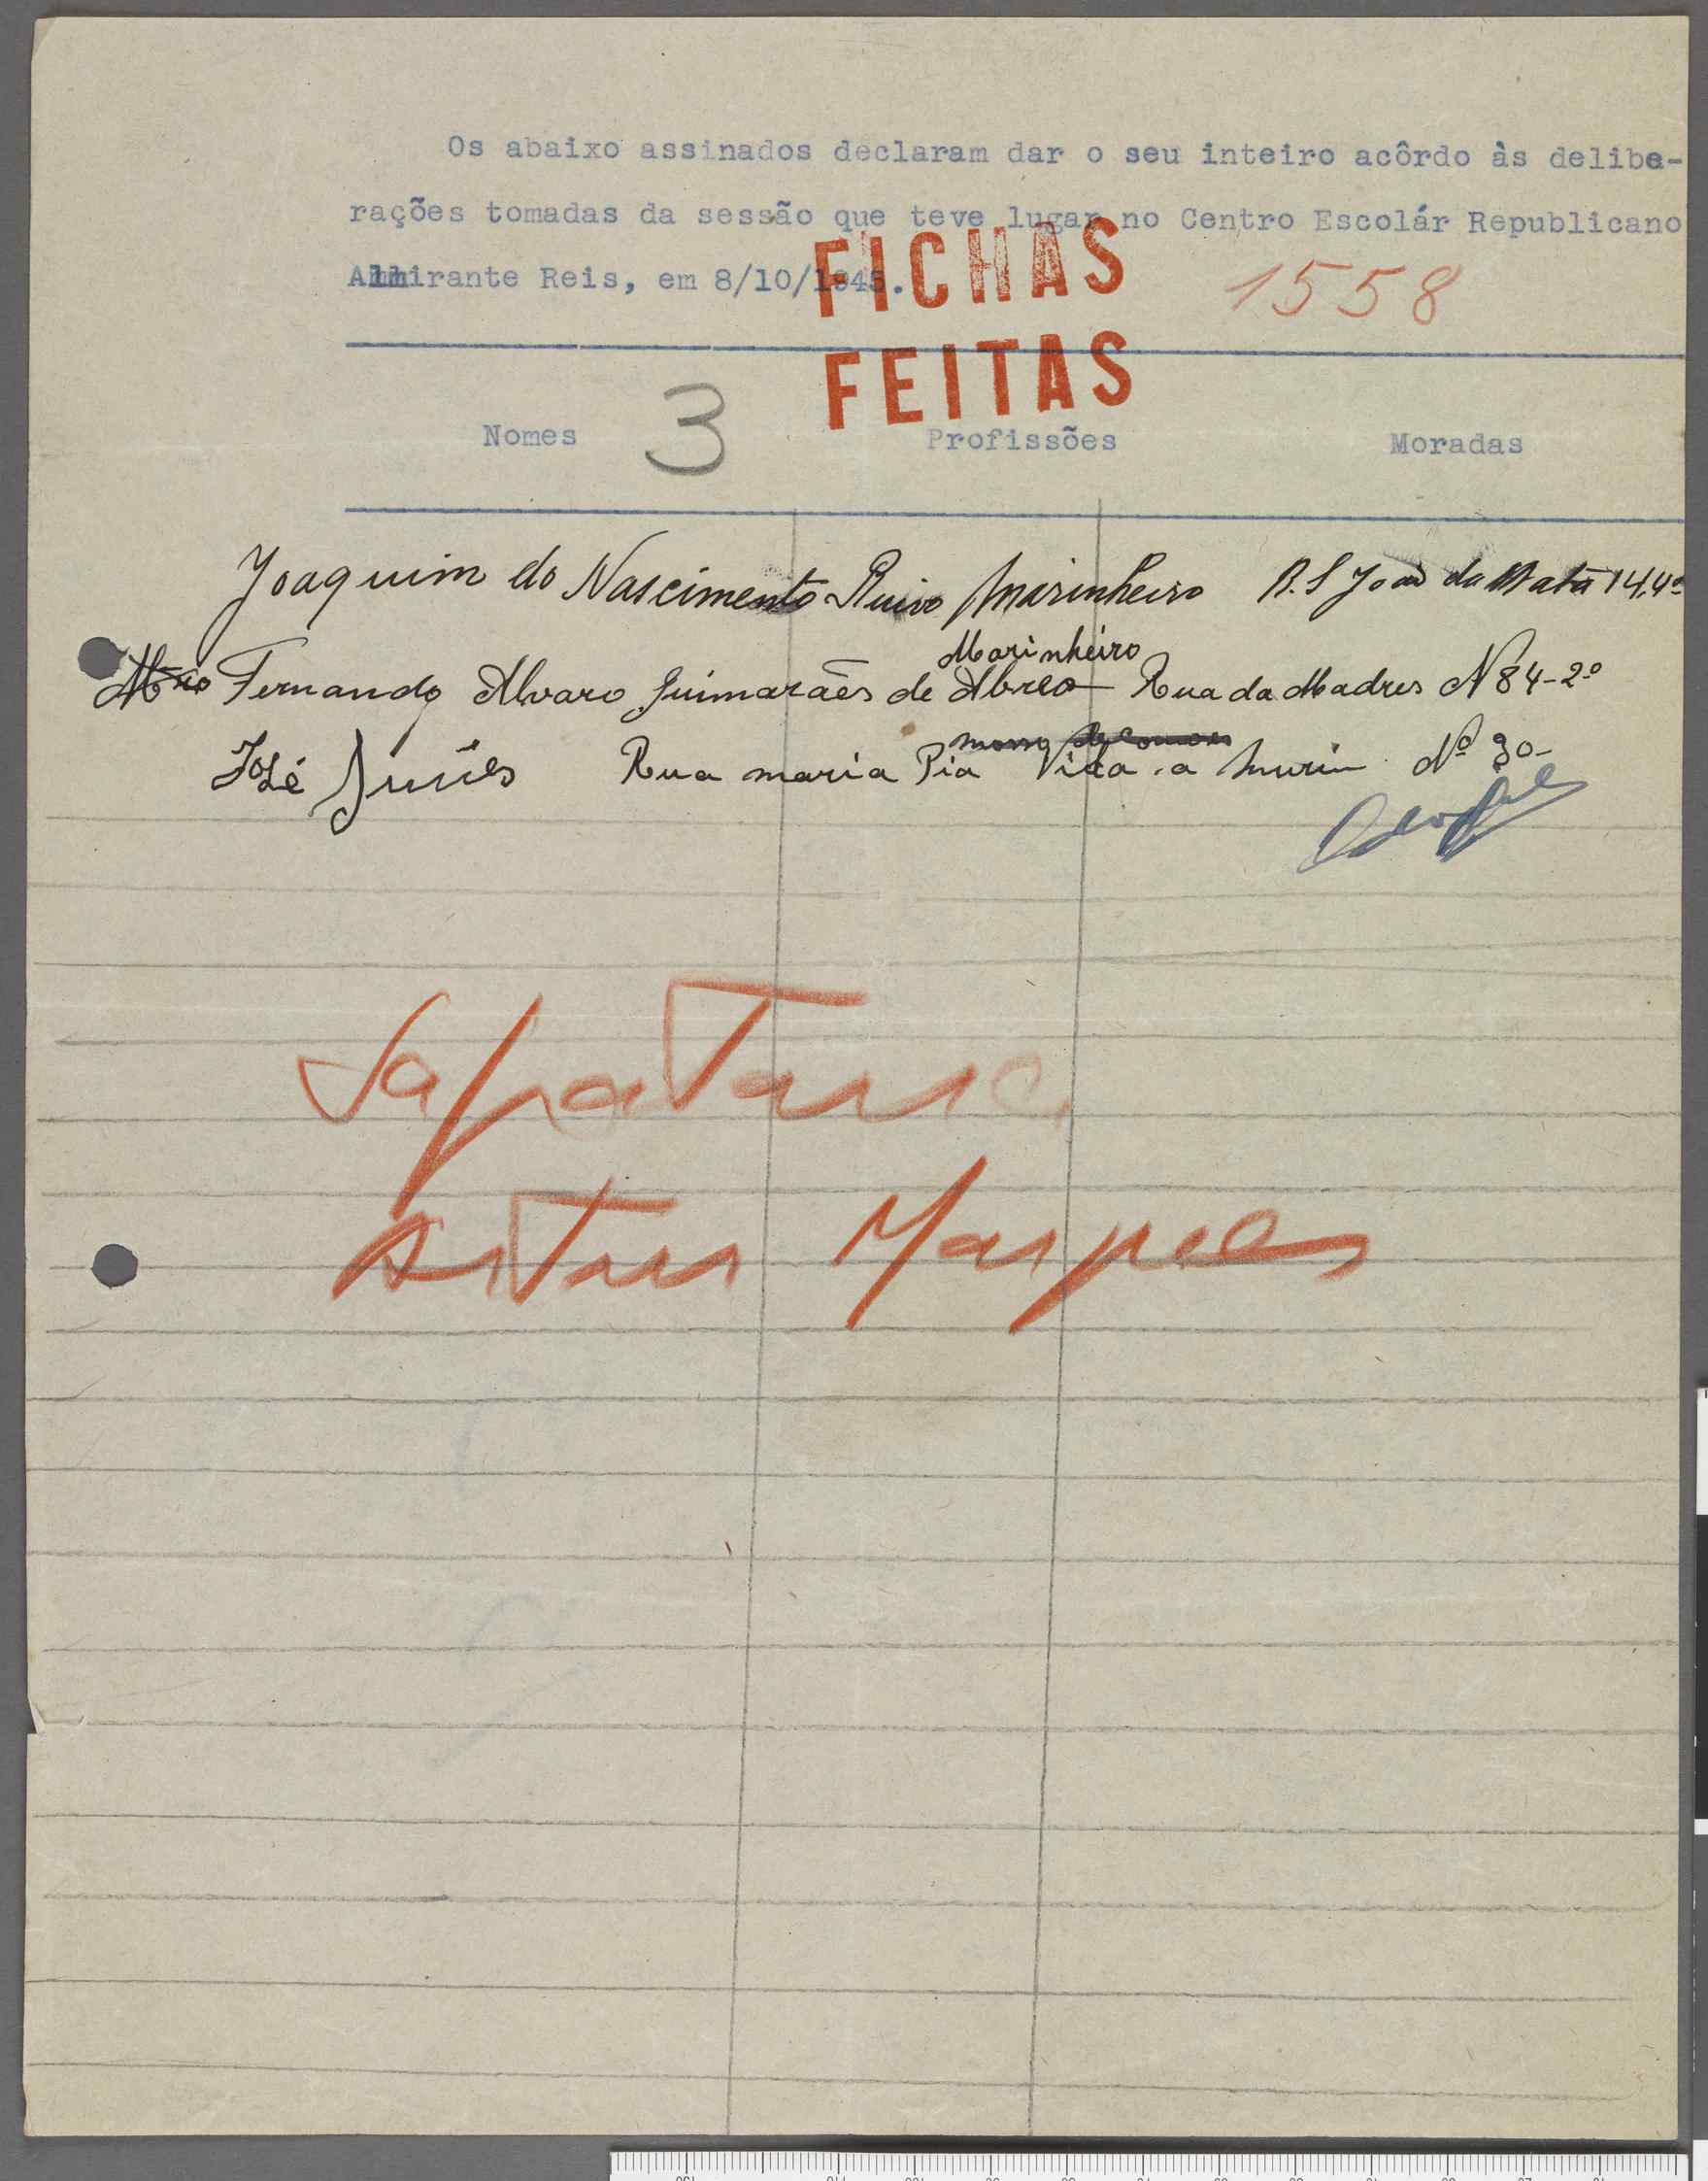 Os abaixo assinados declaram dar o seu inteiro acôrdo às delibe-
rações tomadas da sessão que teve lugar no Centro Escolár Republicano
Almirante Reis, em 8/10/1945.
FICHAS
1558
FEITAS
Nomes 3 Profissões Moradas
Joaquim do Nascimento Ruivo Marinheiro R. S João da Mata 14,4º
Marinheiro
Fernando Alvaro Guimarães de Abreo Rua da Madres Nº 84-2º
José Nunes Rua maria Pia Vila Nº 30-
Sapataria
Artur Marques